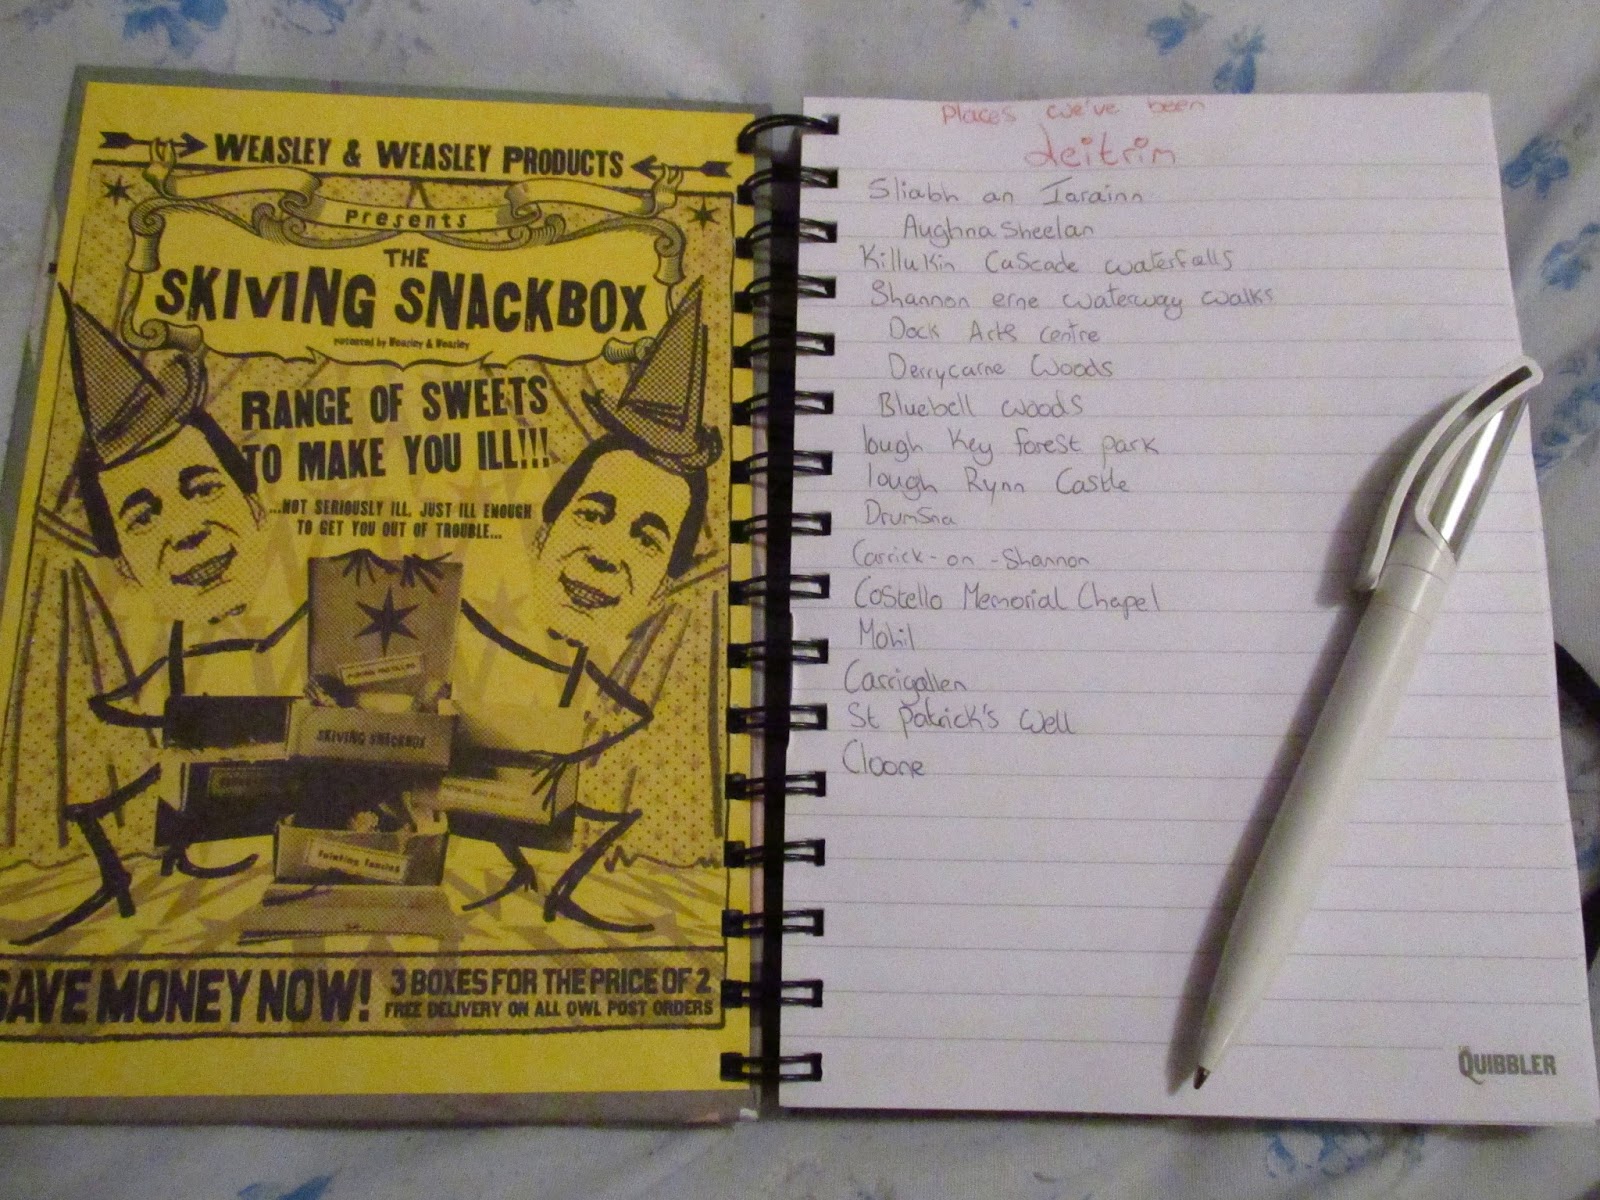 WEASLEY & WEASLEY PRODUCTS
Presents
THE
SKIVING SNACKBOX
patented by Weasley & Weasley
RANGE OF SWEETS
TO MAKE YOU ILL!!!
...NOT SERIOUSLY ILL, JUST ILL ENOUGH
TO GET YOU OUT OF TROUBLE...
SKIVING SNACKBOX
Fainting Fancies
SAVE MONEY NOW!
3 BOXES FOR THE PRICE OF 2
FREE DELIVERY ON ALL OWL POST ORDERS
Places we've been
Leitrim
Sliabh an Iarainn
Aughna Sheelan
Killukin Cascade waterfalls
Shannon erne waterway walks
Dock Arts centre
Derrycarne Woods
Bluebell woods
lough Key forest park
lough Rynn Castle
Drumsna
Carrick-on-Shannon
Costello Memorial Chapel
Mohil
Carrigallen
St Patrick's Well
Cloone
THE QUIBBLER